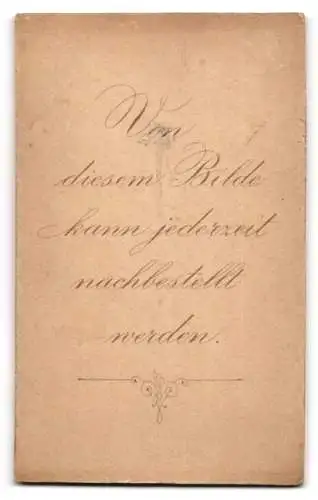 Von
diesem Bilde
kann jederzeit
nachbestellt
werden.